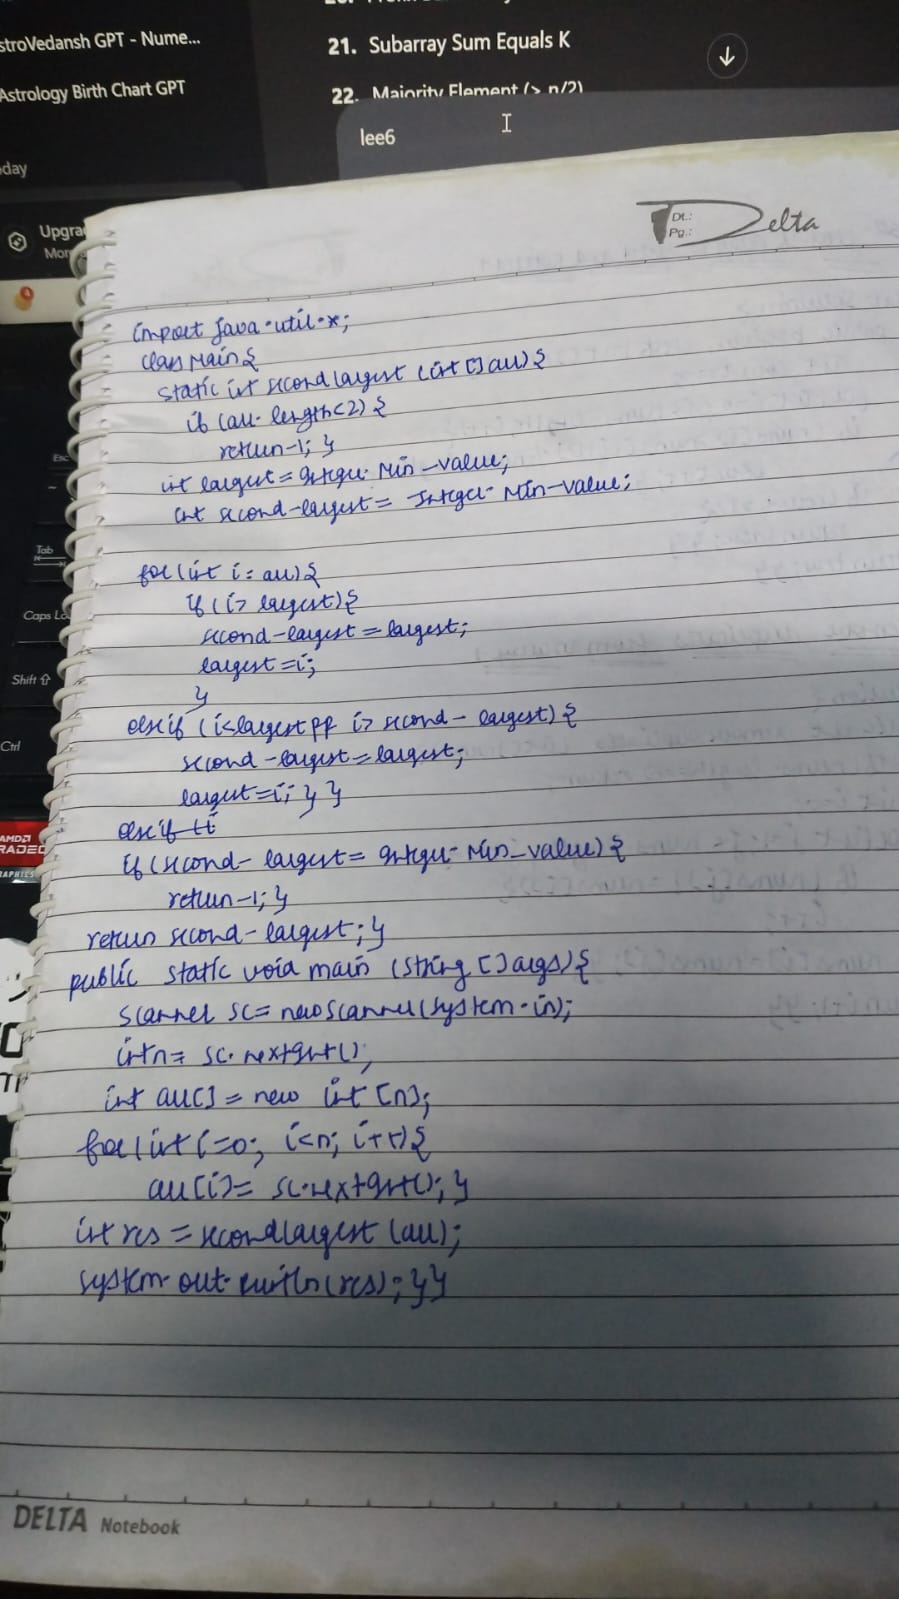 stroVedansh GPT - Nume...
Astrology Birth Chart GPT
day
Upgra
Mor
21. Subarray Sum Equals K
22. Majority Element (> n/2)
lee6
Dt.:
Pg.:
Delta
import java.util.*;
class Main{
static int secondlargest (int [] arr) {
if (arr.length<2) {
return-1; }
int largest = Integer.Min_value;
int second-largest = Integer.Min-value;
for (int i : arr) {
if (i> largest) {
second-largest = largest;
largest = i;
}
else if (i<largest && i> second-largest) {
second-largest = largest;
largest = i; } }
else if
if (second-largest = Integer.Min_value) {
return-1; }
return second-largest; }
public static void main (String [] args) {
Scanner sc = new Scanner(System.in);
int n = sc.nextInt();
int arr[] = new int [n];
for (int i=0; i<n; i++) {
arr[i] = sc.nextInt(); }
int res = secondlargest (arr);
System.out.println(res); } }
Esc
~
Tab
Caps Lo
Shift
Ctrl
AMD
RADEO
RAPHICS
DELTA Notebook